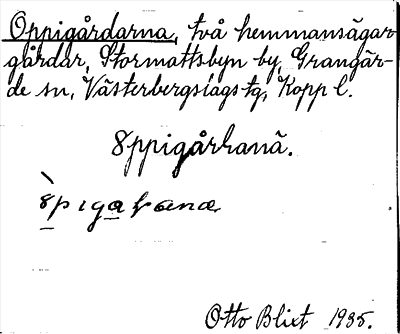 Oppigårdarna, två hemmansägar-
gårdar, Stormattsbyn by, Grangär-
de sn, Västerbergslags tg, Kopp l.
8ppigårhanã.
Otto Blixt 1935.